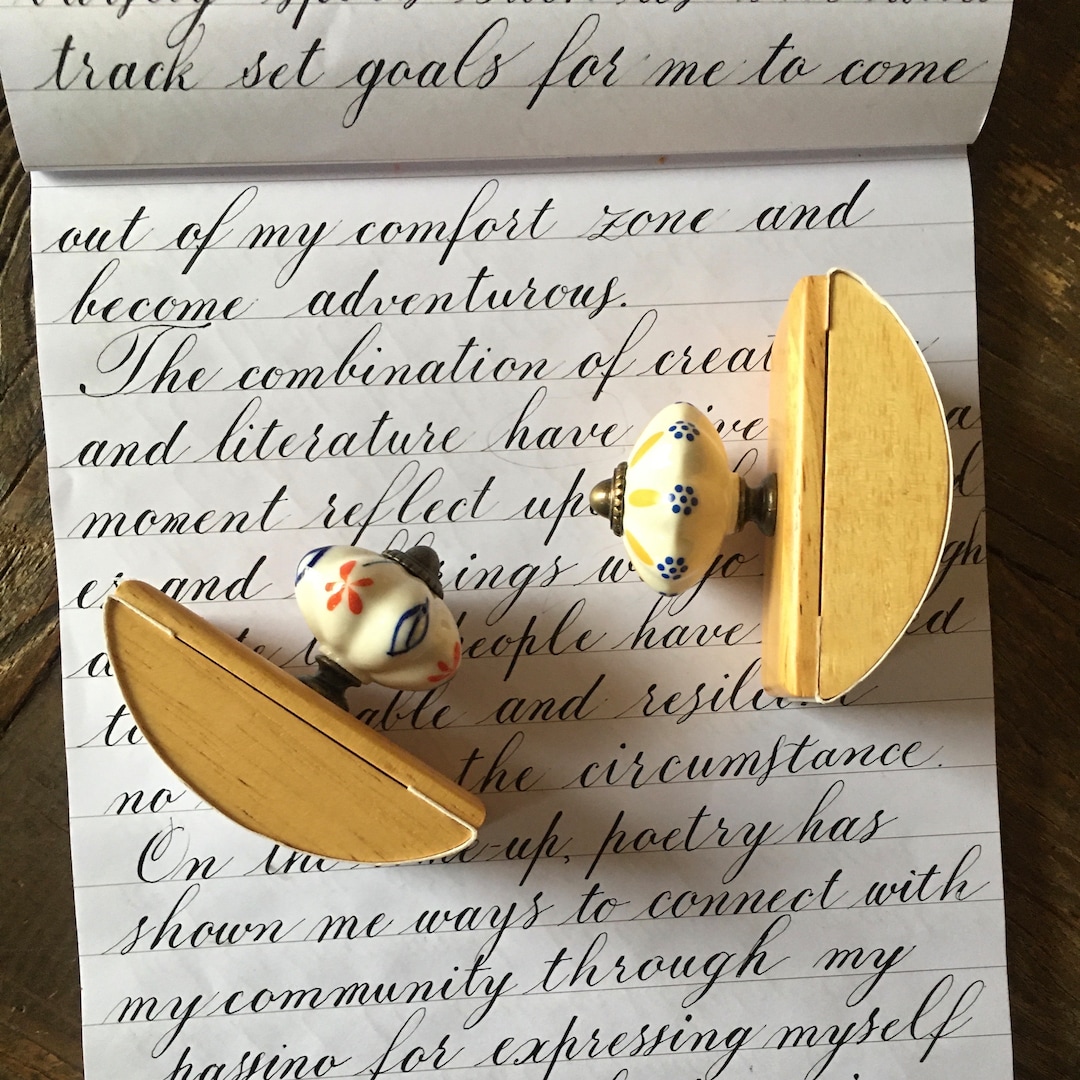 track set goals for me to come
out of my comfort zone and
become adventurous.
The combination of creat
and literature have ive a
moment reflect up d
es and rings w go gh
people have d
able and resilien
no the circumstance.
On the me-up, poetry has
shown me ways to connect with
my community through my
passing for expressing myself